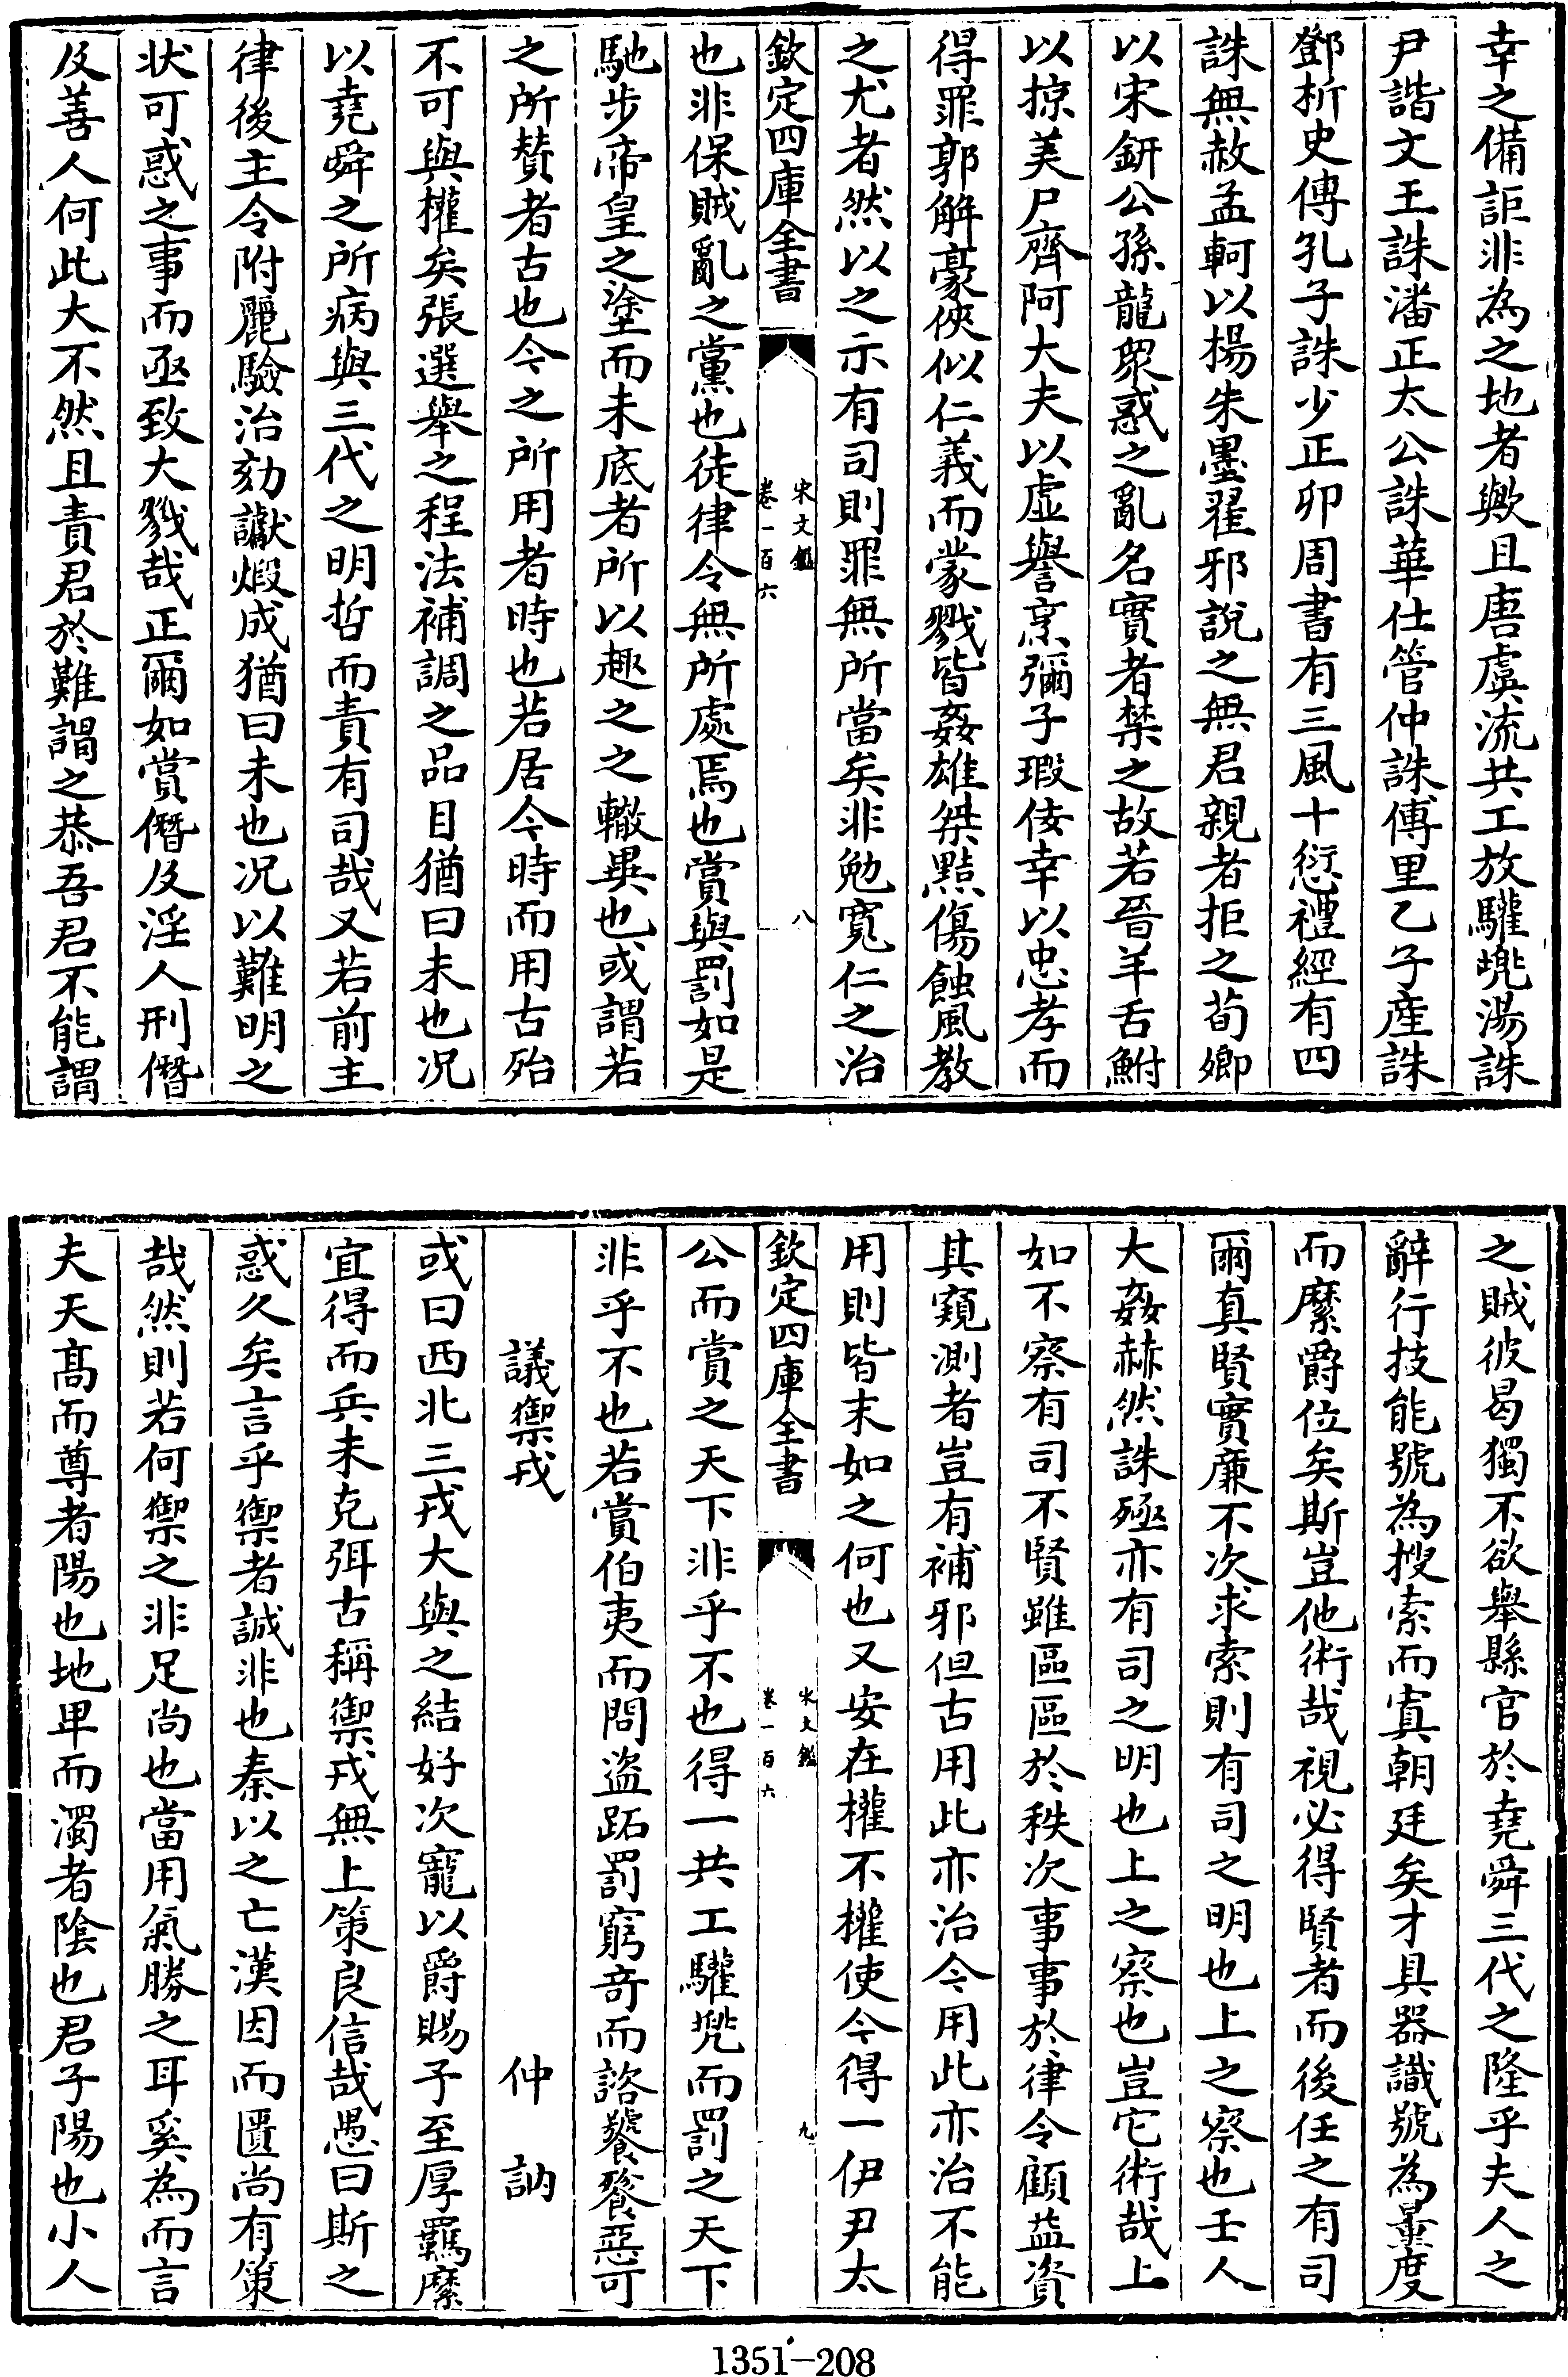 幸之備詎非為之地者歟且唐虞流共工放驩兠湯誅
尹諧文王誅潘正太公誅華仕管仲誅傅里乙子產誅
鄧析史傳孔子誅少正卯周書有三風十愆禮經有四
誅無赦孟軻以楊朱墨翟邪說之無君親者拒之荀卿
以宋鈃公孫龍衆惑之亂名實者禁之故若晉羊舌鮒
以掠美尸齊阿大夫以虛譽烹彌子瑕佞幸以忠孝而
得罪郭解豪俠似仁義而蒙戮皆姦雄桀黠傷蝕風教
之尤者然以之示有司則罪無所當矣非勉寬仁之治
欽定四庫全書
宋文鑑
卷一百六
八
也非保賊亂之黨也徒律令無所處焉也賞與罰如是
馳步帝皇之塗而未底者所以趣之之轍異也或謂若
之所賛者古也今之所用者時也若居今時而用古殆
不可與權矣張選舉之程法補調之品目猶曰未也况
以堯舜之所病與三代之明哲而責有司哉又若前主
律後主令附麗驗治劾讞煅成猶曰未也况以難明之
状可惑之事而亟致大戮哉正爾如賞僭及淫人刑僭
及善人何此大不然且責君於難謂之恭吾君不能謂
之賊彼曷獨不欲舉縣官於堯舜三代之隆乎夫人之
辭行技能號為搜索而寘朝廷矣才具器識號為量度
而縻爵位矣斯豈他術哉視必得賢者而後任之有司
爾真賢實亷不次求索則有司之明也上之察也壬人
大姦赫然誅殛亦有司之明也上之察也豈它術哉上
如不察有司不賢雖區區於秩次事事於律令顧益資
其窺測者豈有補邪但古用此亦治今用此亦治不能
用則皆末如之何也又安在權不權使今得一伊尹太
欽定四庫全書
宋文鑑
卷一百六
九
公而賞之天下非乎不也得一共工驩兠而罰之天下
非乎不也若賞伯夷而問盜跖罰窮奇而諮饕餮惡可
議禦戎　仲訥
或曰西北三戎大與之結好次寵以爵賜予至厚羈縻
宜得而兵未克弭古稱禦戎無上策良信哉愚曰斯之
惑久矣言乎禦者誠非也秦以之亡漢因而匱尚有策
哉然則若何禦之非足尚也當用氣勝之耳奚為而言
夫天髙而尊者陽也地卑而濁者陰也君子陽也小人
1351-208